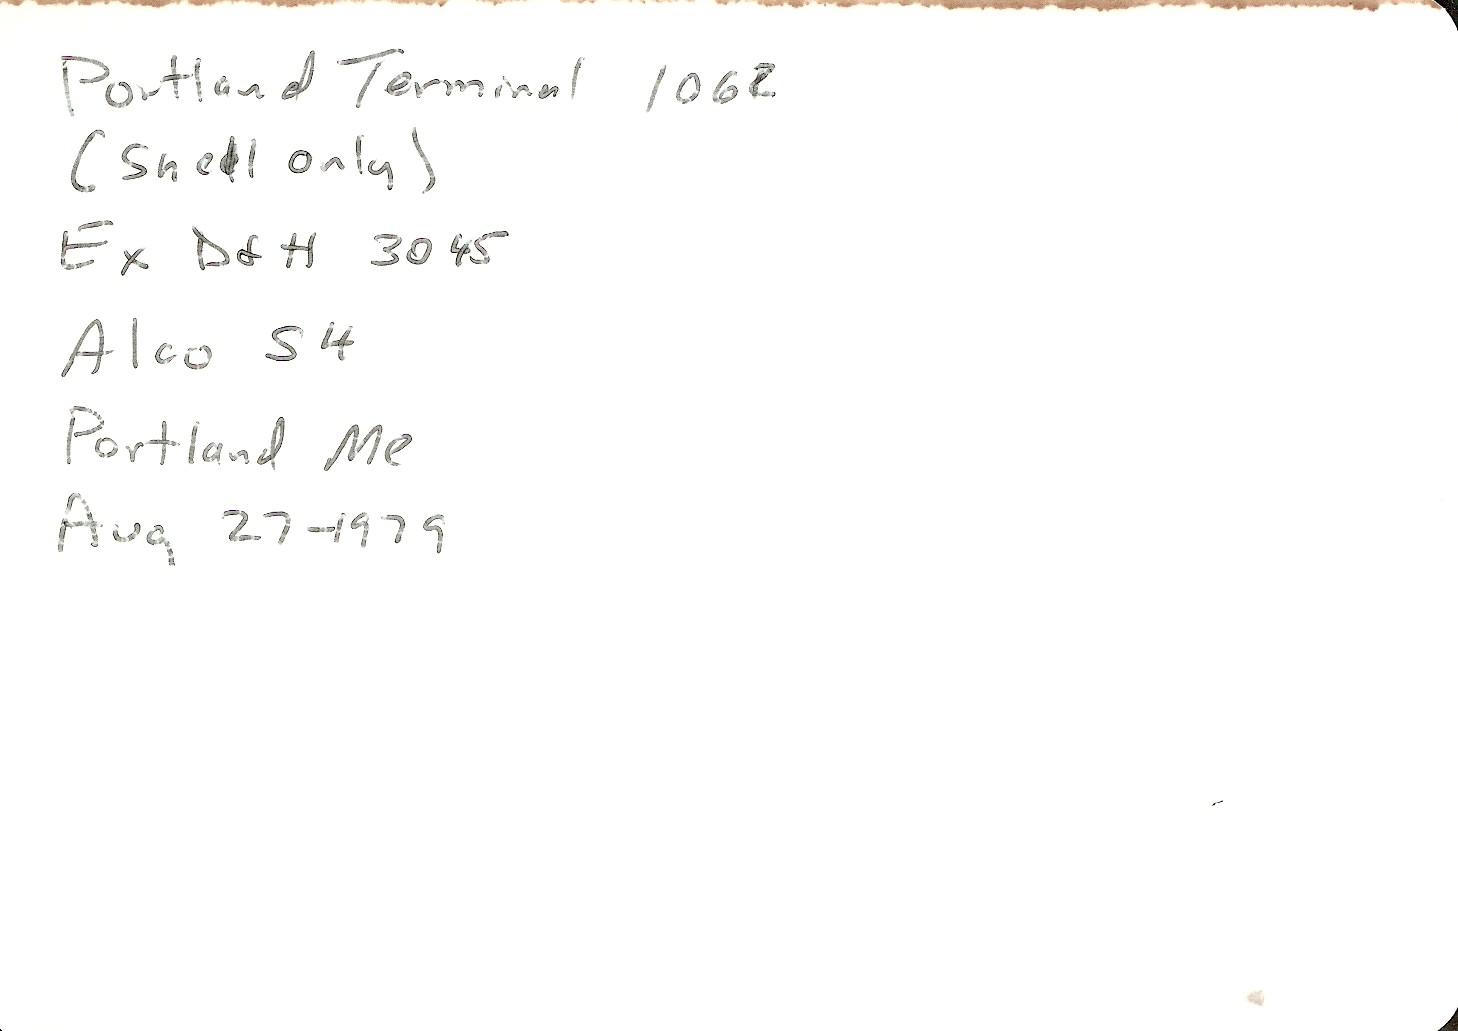 Portland Terminal 1062
(Shell only)
Ex D&H 3045
Alco S4
Portland Me
Aug 27-1979